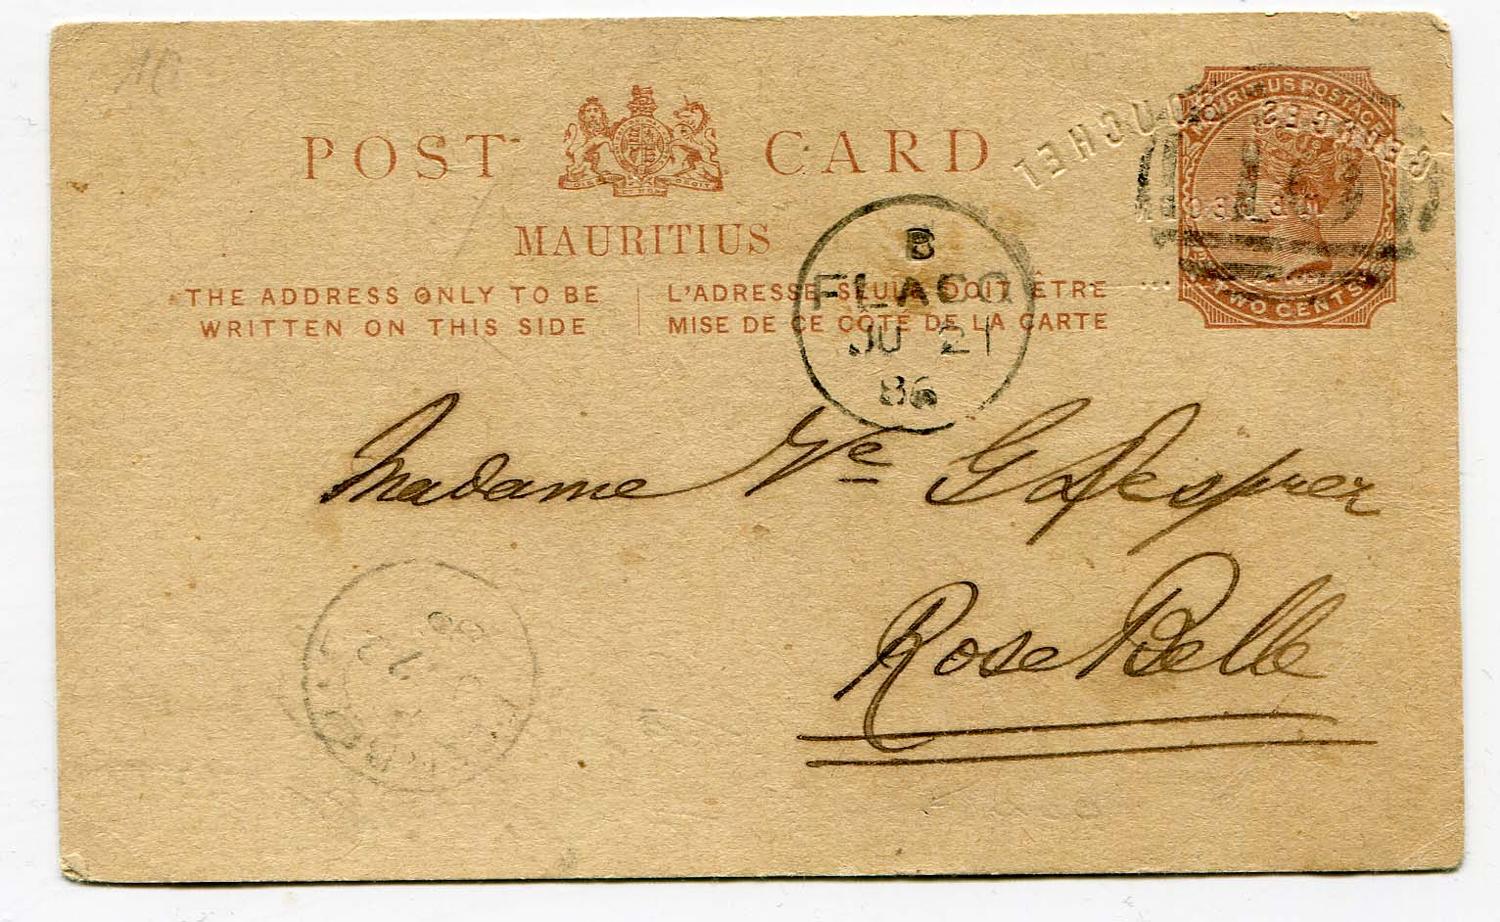 POST CARD
MAURITIUS
THE ADDRESS ONLY TO BE
WRITTEN ON THIS SIDE
L'ADRESSE SEULE DOIT ÊTRE
MISE DE CE COTÉ DE LA CARTE
MAURITIUS POSTAGE
TWO CENTS
GEORGES ROUCHET
B
FLACQ
JU 21
86
Madame Ve G Desprez
Rose Belle